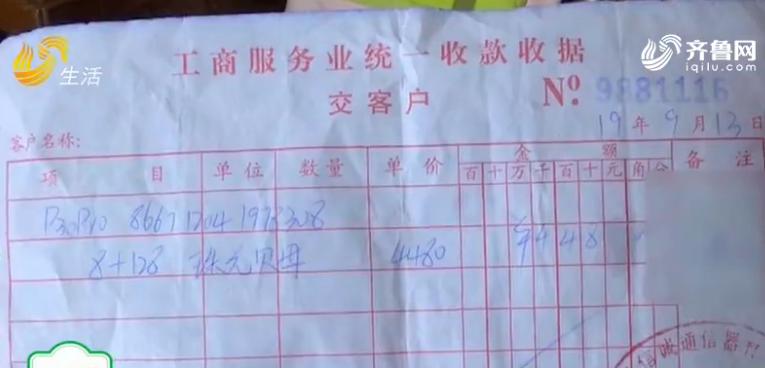 生活
齐鲁网
iqilu.com
工商服务业统一收款收据
交客户
Nº 9881116
19年9月13日
客户名称：
项目 单位 数量 单价 金额 备注
百 十 万 千 百 十 元 角 分
8+128 珠光贝母 4480 ¥ 4 4 8
诚通信器